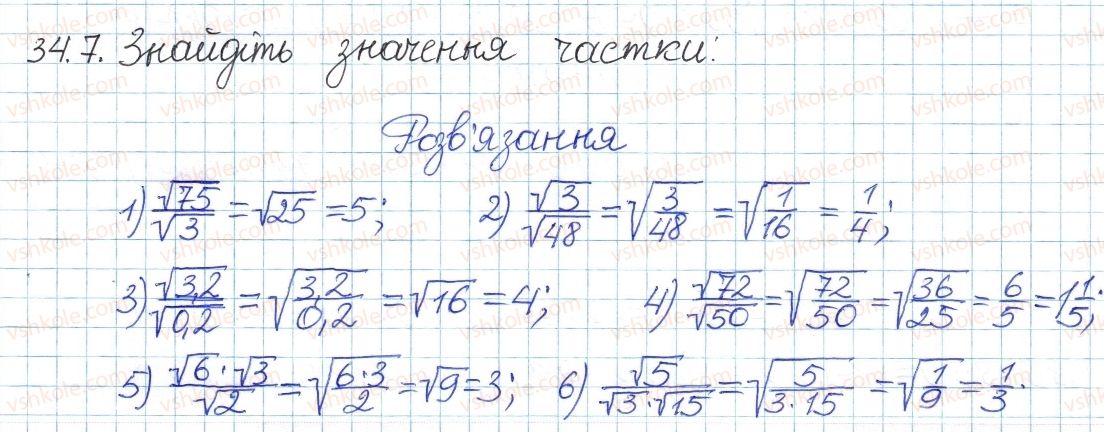 34.7. Знайдіть значення частки:
Розв'язання
1) √75/√3 = √25 = 5; 2) √3/√48 = √(3/48) = √(1/16) = 1/4;
3) √3,2/√0,2 = √(3,2/0,2) = √16 = 4; 4) √72/√50 = √(72/50) = √(36/25) = 6/5 = 1 1/5;
5) √6·√3/√2 = √(6·3/2) = √9 = 3; 6) √5/(√3·√15) = √(5/(3·15)) = √(1/9) = 1/3.